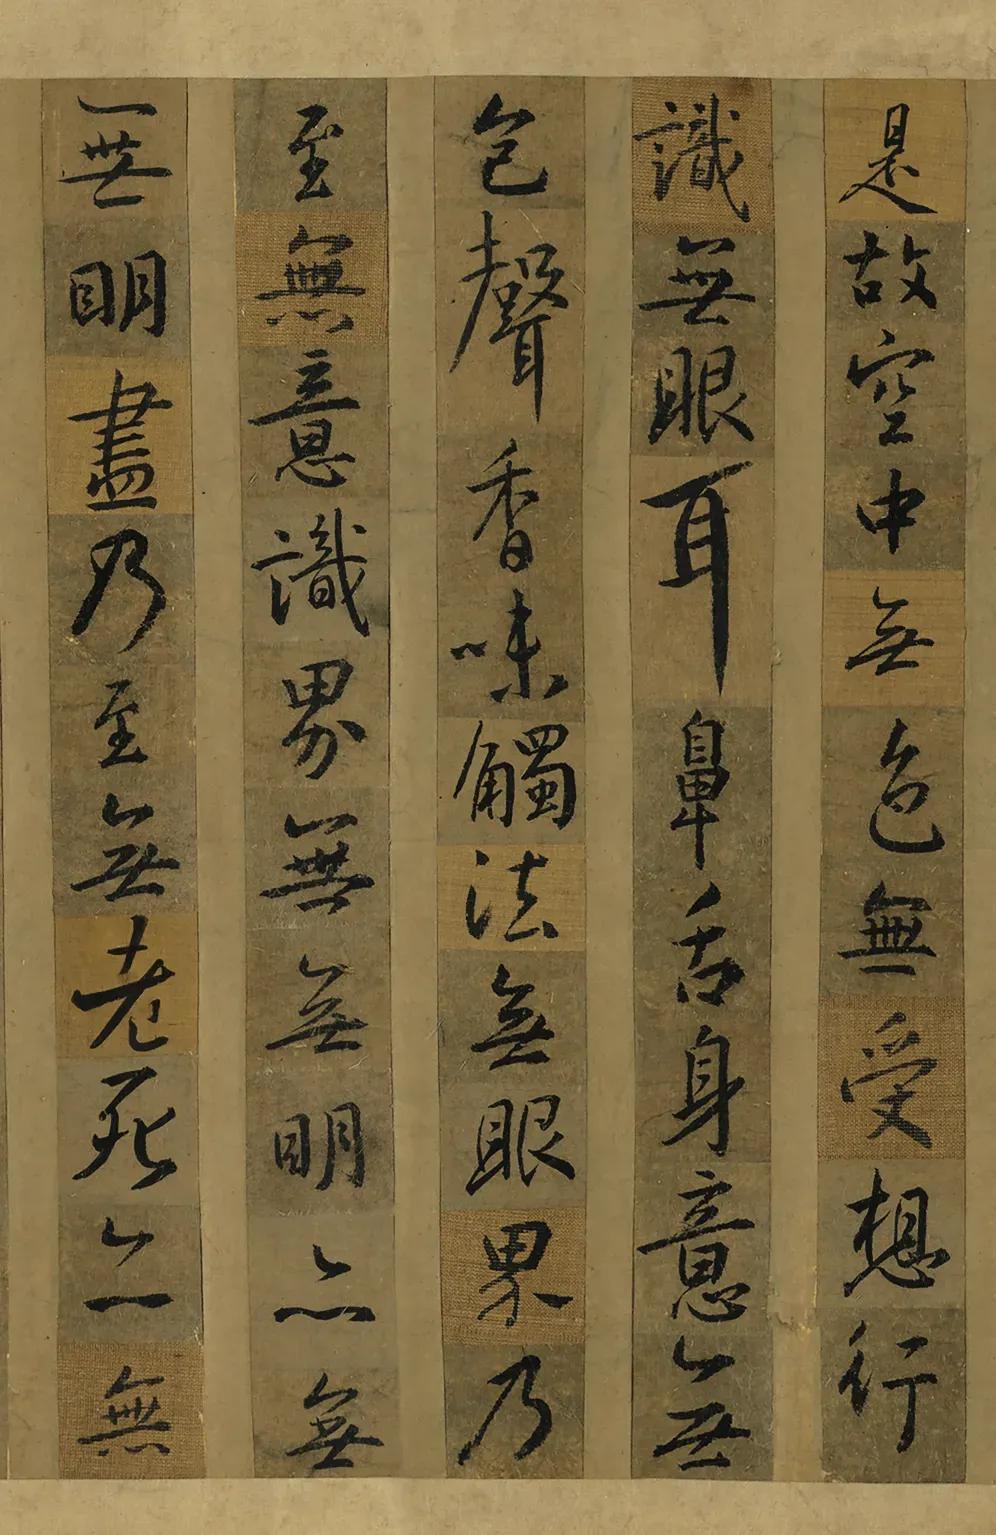 是故空中無色無受想行
識無眼耳鼻舌身意無
色聲香味觸法無眼界乃
至無意識界無無明亦無
無明盡乃至無老死亦無